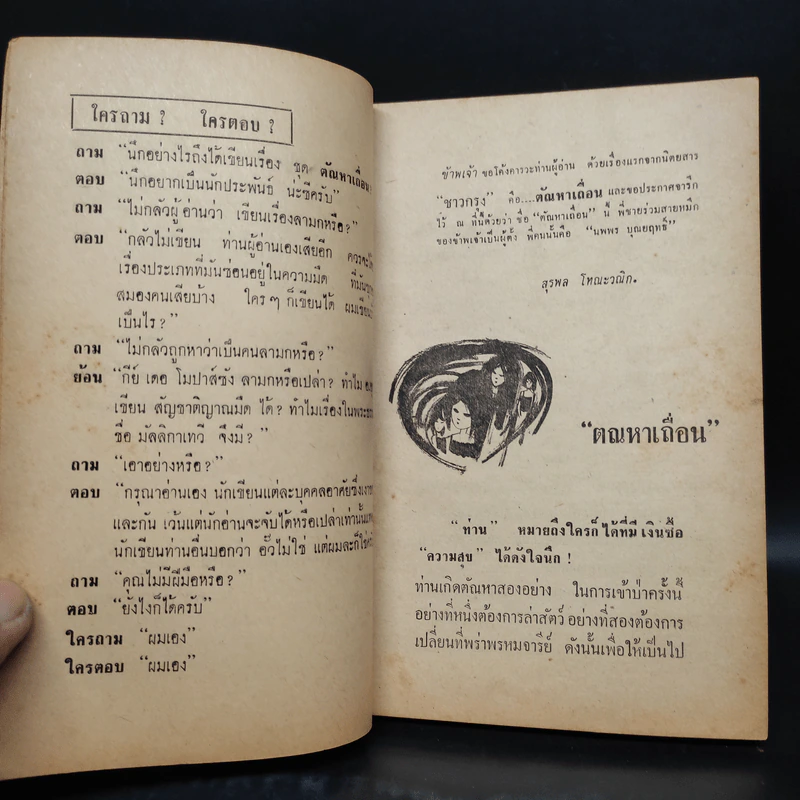 ใครถาม ?  ใครตอบ ?
ถาม “นึกอย่างไรถึงได้เขียนเรื่อง ชุด ตัณหาเถื่อน
ตอบ “นึกอยากเป็นนักประพันธ์ น่ะซีครับ”
ถาม “ไม่กลัวผู้อ่านว่า เขียนเรื่องลามกหรือ?”
ตอบ “กลัวไม่เขียน ท่านผู้อ่านเองเสียอีก
เรื่องประเภทที่มันซ่อนอยู่ในความมืด
สมองคนเสียบ้าง ใครๆ ก็เขียนได้
เป็นไร?”
ถาม “ไม่กลัวถูกหาว่าเป็นคนลามกหรือ?”
ย้อน “กีย์ เดอ โมปาส์ซัง ลามกหรือเปล่า? ทำไม
เขียน สัญชาติญาณมืด ได้? ทำไมเรื่องใน
ชื่อ มัลลิกาเทวี จึงมี?”
ถาม “เอาอย่างหรือ?”
ตอบ “กรุณาอ่านเอง นักเขียนแต่ละบุคคลอาศัยซึ่ง
และกัน เว้นแต่นักอ่านจะจับได้หรือเปล่าเท่านั้น
นักเขียนท่านอื่นบอกว่า อั๊วไม่ใช่ แต่ผมละก็ใช่
ถาม “คุณไม่มีฝีมือหรือ?”
ตอบ “ยังไงก็ได้ครับ”
ใครถาม “ผมเอง”
ใครตอบ “ผมเอง”
ข้าพเจ้า ขอโค้งคารวะท่านผู้อ่าน ด้วยเรื่องแรกจากนิตยสาร
“ชาวกรุง” คือ....ตัณหาเถื่อน และขอประกาศจารึก
ไว้ ณ ที่นี้ด้วยว่า ชื่อ “ตัณหาเถื่อน” นี้ พี่ชายร่วมสายหมึก
ของข้าพเจ้าเป็นผู้ตั้ง พี่คนนั้นคือ “นพพร บุณยฤทธิ์”
สุรพล โทณะวณิก.
“ตัณหาเถื่อน”
“ท่าน” หมายถึงใครก็ได้ที่มี เงินซื้อ
“ความสุข” ได้ดังใจนึก !
ท่านเกิดตัณหาสองอย่าง ในการเข้าป่าครั้งนี้
อย่างที่หนึ่งต้องการล่าสัตว์ อย่างที่สองต้องการ
เปลี่ยนที่พร่าพรหมจารีย์ ดังนั้นเพื่อให้เป็นไป